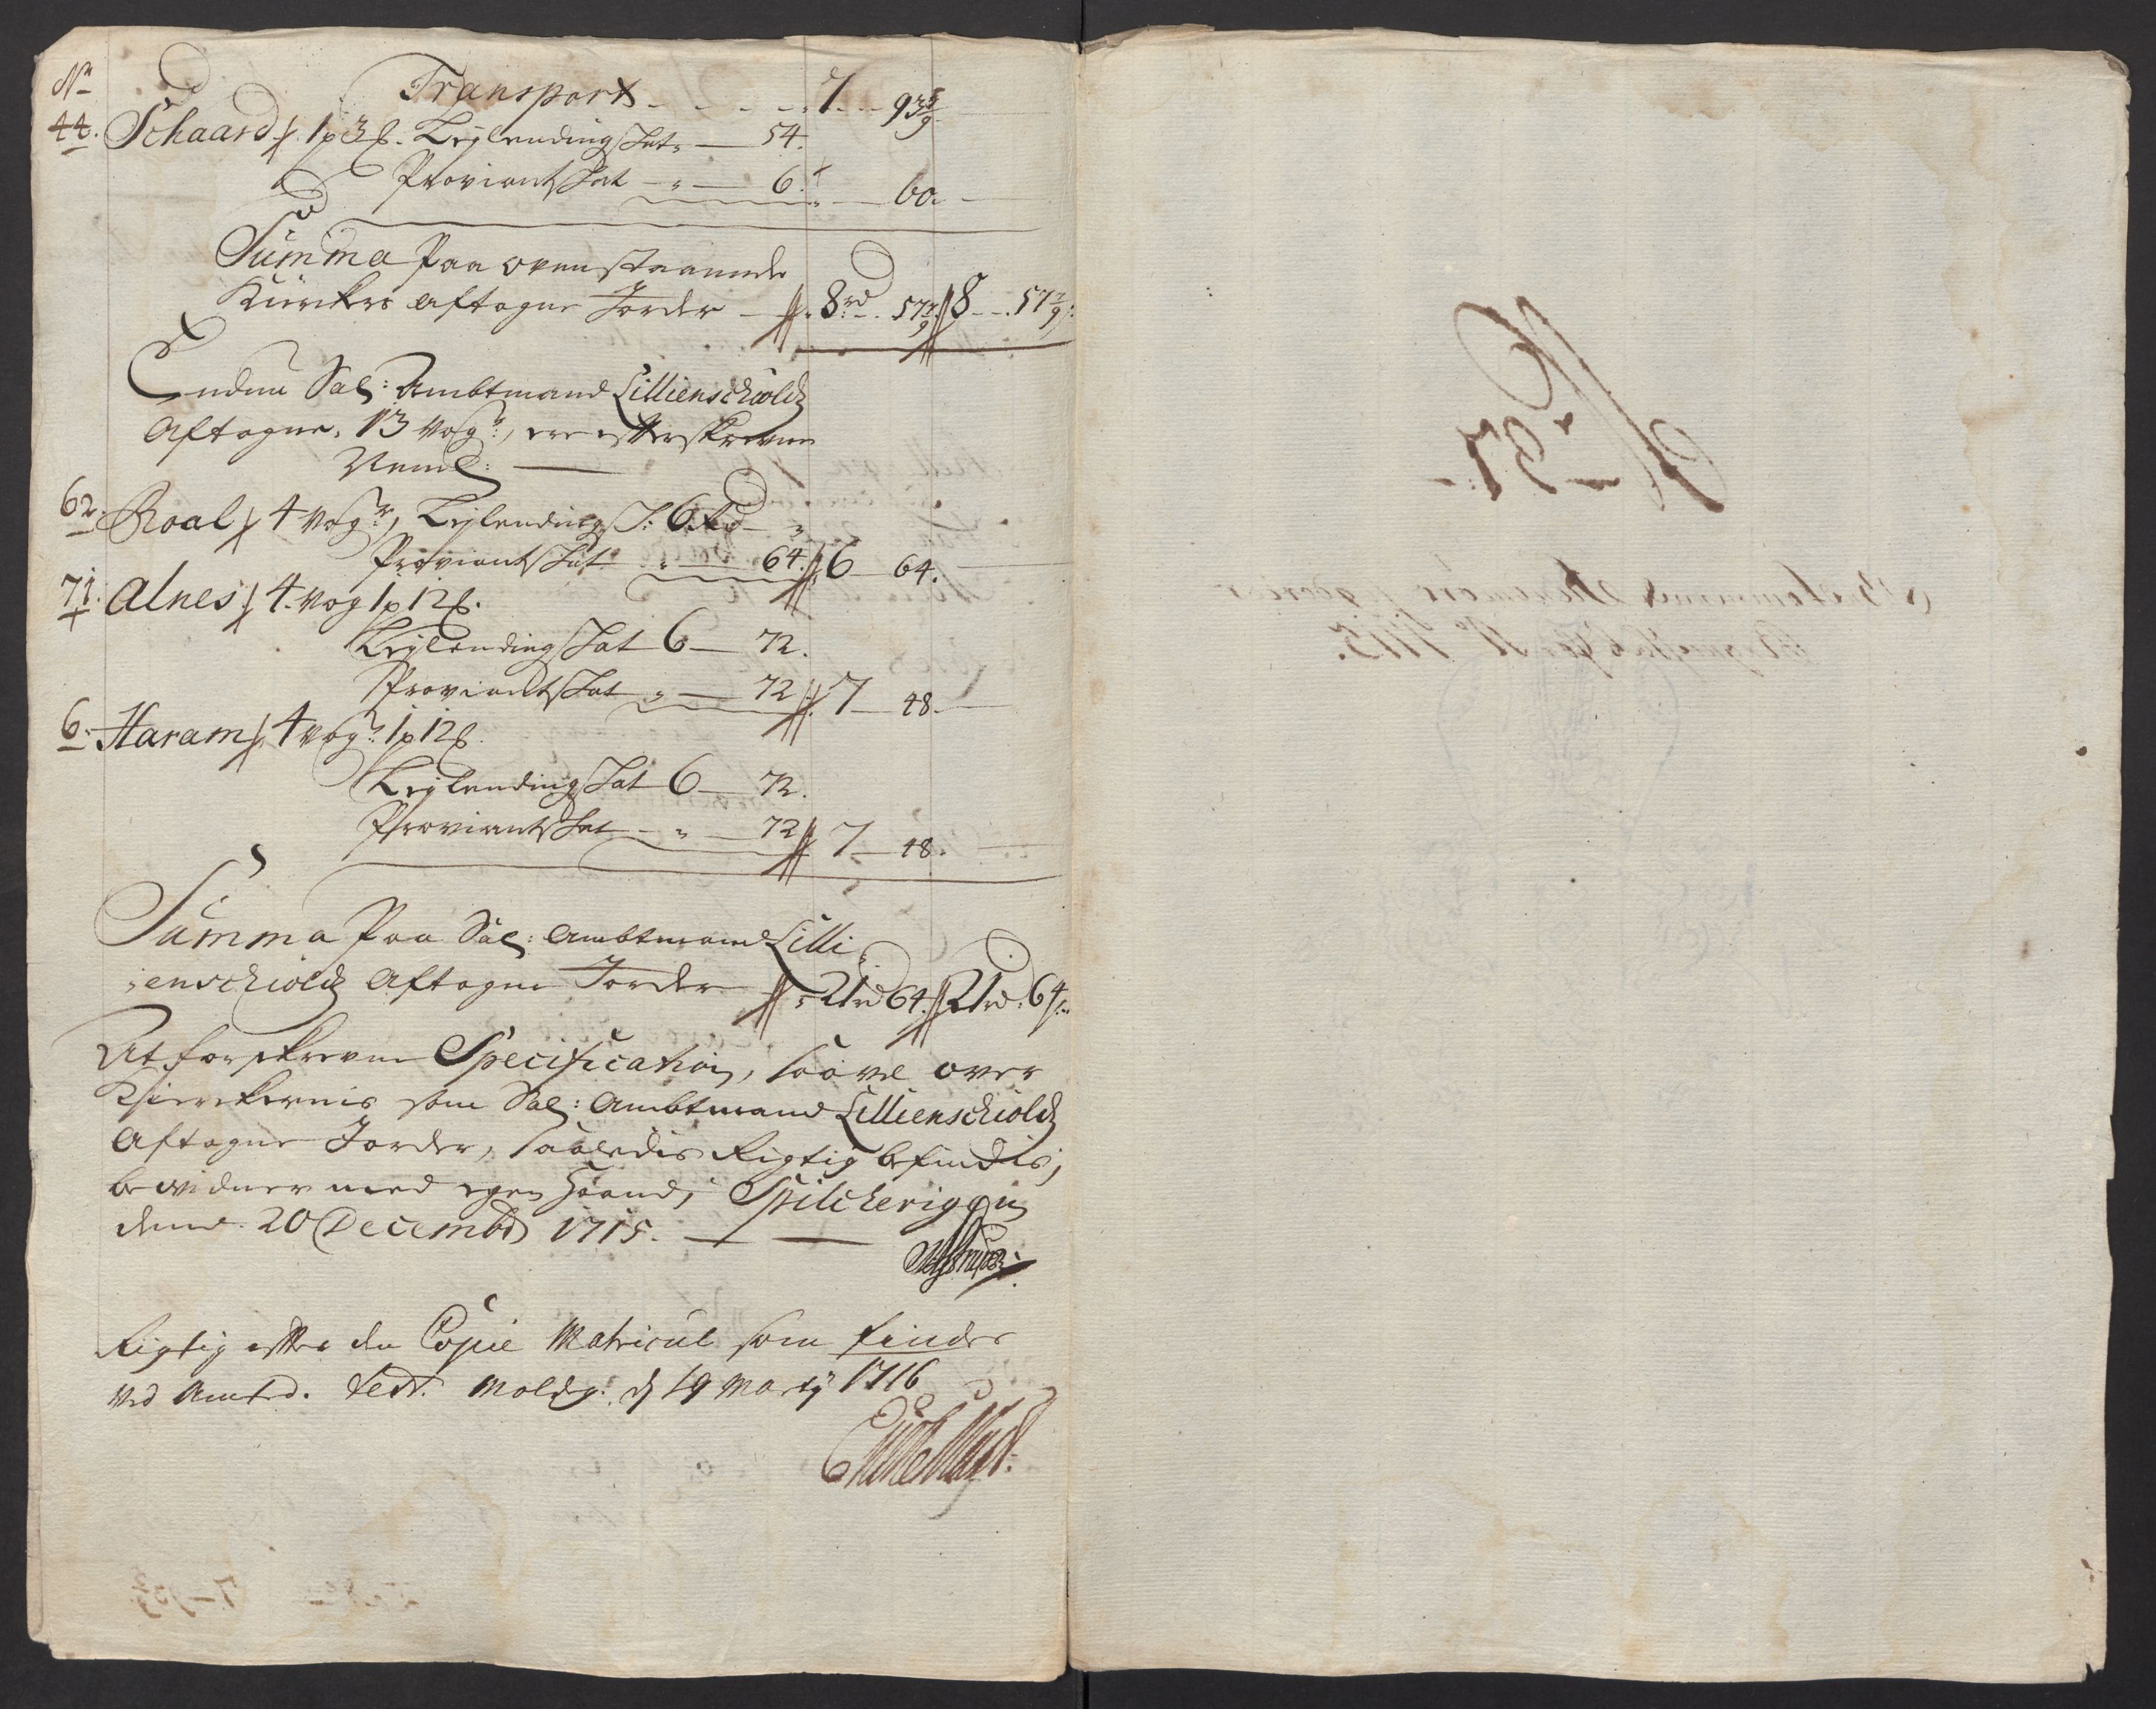 Nr
Transport - - - - 7 - - 93 7/9
44. Schaard 1 p 3 ℔. Leylendingskat - 54.
Proviantskat - „ - 6. „ - 60 -
Summa paa ovenstaaende
Kierkers aftagne Jorder - 8 rd - 57 7/9 8 - - 57 7/9
Endnu Sal: Ambtmand Lillienschiolds
Aftagne, 13 Vogr, ere efterskrevne
Neml: -
62. Roal 4 Vogr, Leylendings S: 6 rd - „
Proviantskat „ - 64. 6 - 64.
71. Alnes 4 Vog 1 p 12 ℔.
Leylendingskat 6 - 72.
Proviantskat „ - 72 7 - 48 -
6. Haram 4 Vogr 1 p 12 ℔.
Leylendingskat 6 - 72.
Proviantskat - „ - 72 7 - 48.
Summa paa Sal: Ambtmand Lilli-
enschiolds Aftagne Jorder 21 rd 64. 21 rd: 64 ß
At forskrevne Specification, saavel over
Kierkernis som Sal: Ambtmand Lillienschiolds
Aftagne Jorder, saaledis Rigtig befindis,
bevidner med egen Haand, Spilcheviggen
dend. 20 Decembr 1715. -
Rigtig efter den Copie Matricul som findes
ved Amted. Test. Molde: d 19 Marty 1716